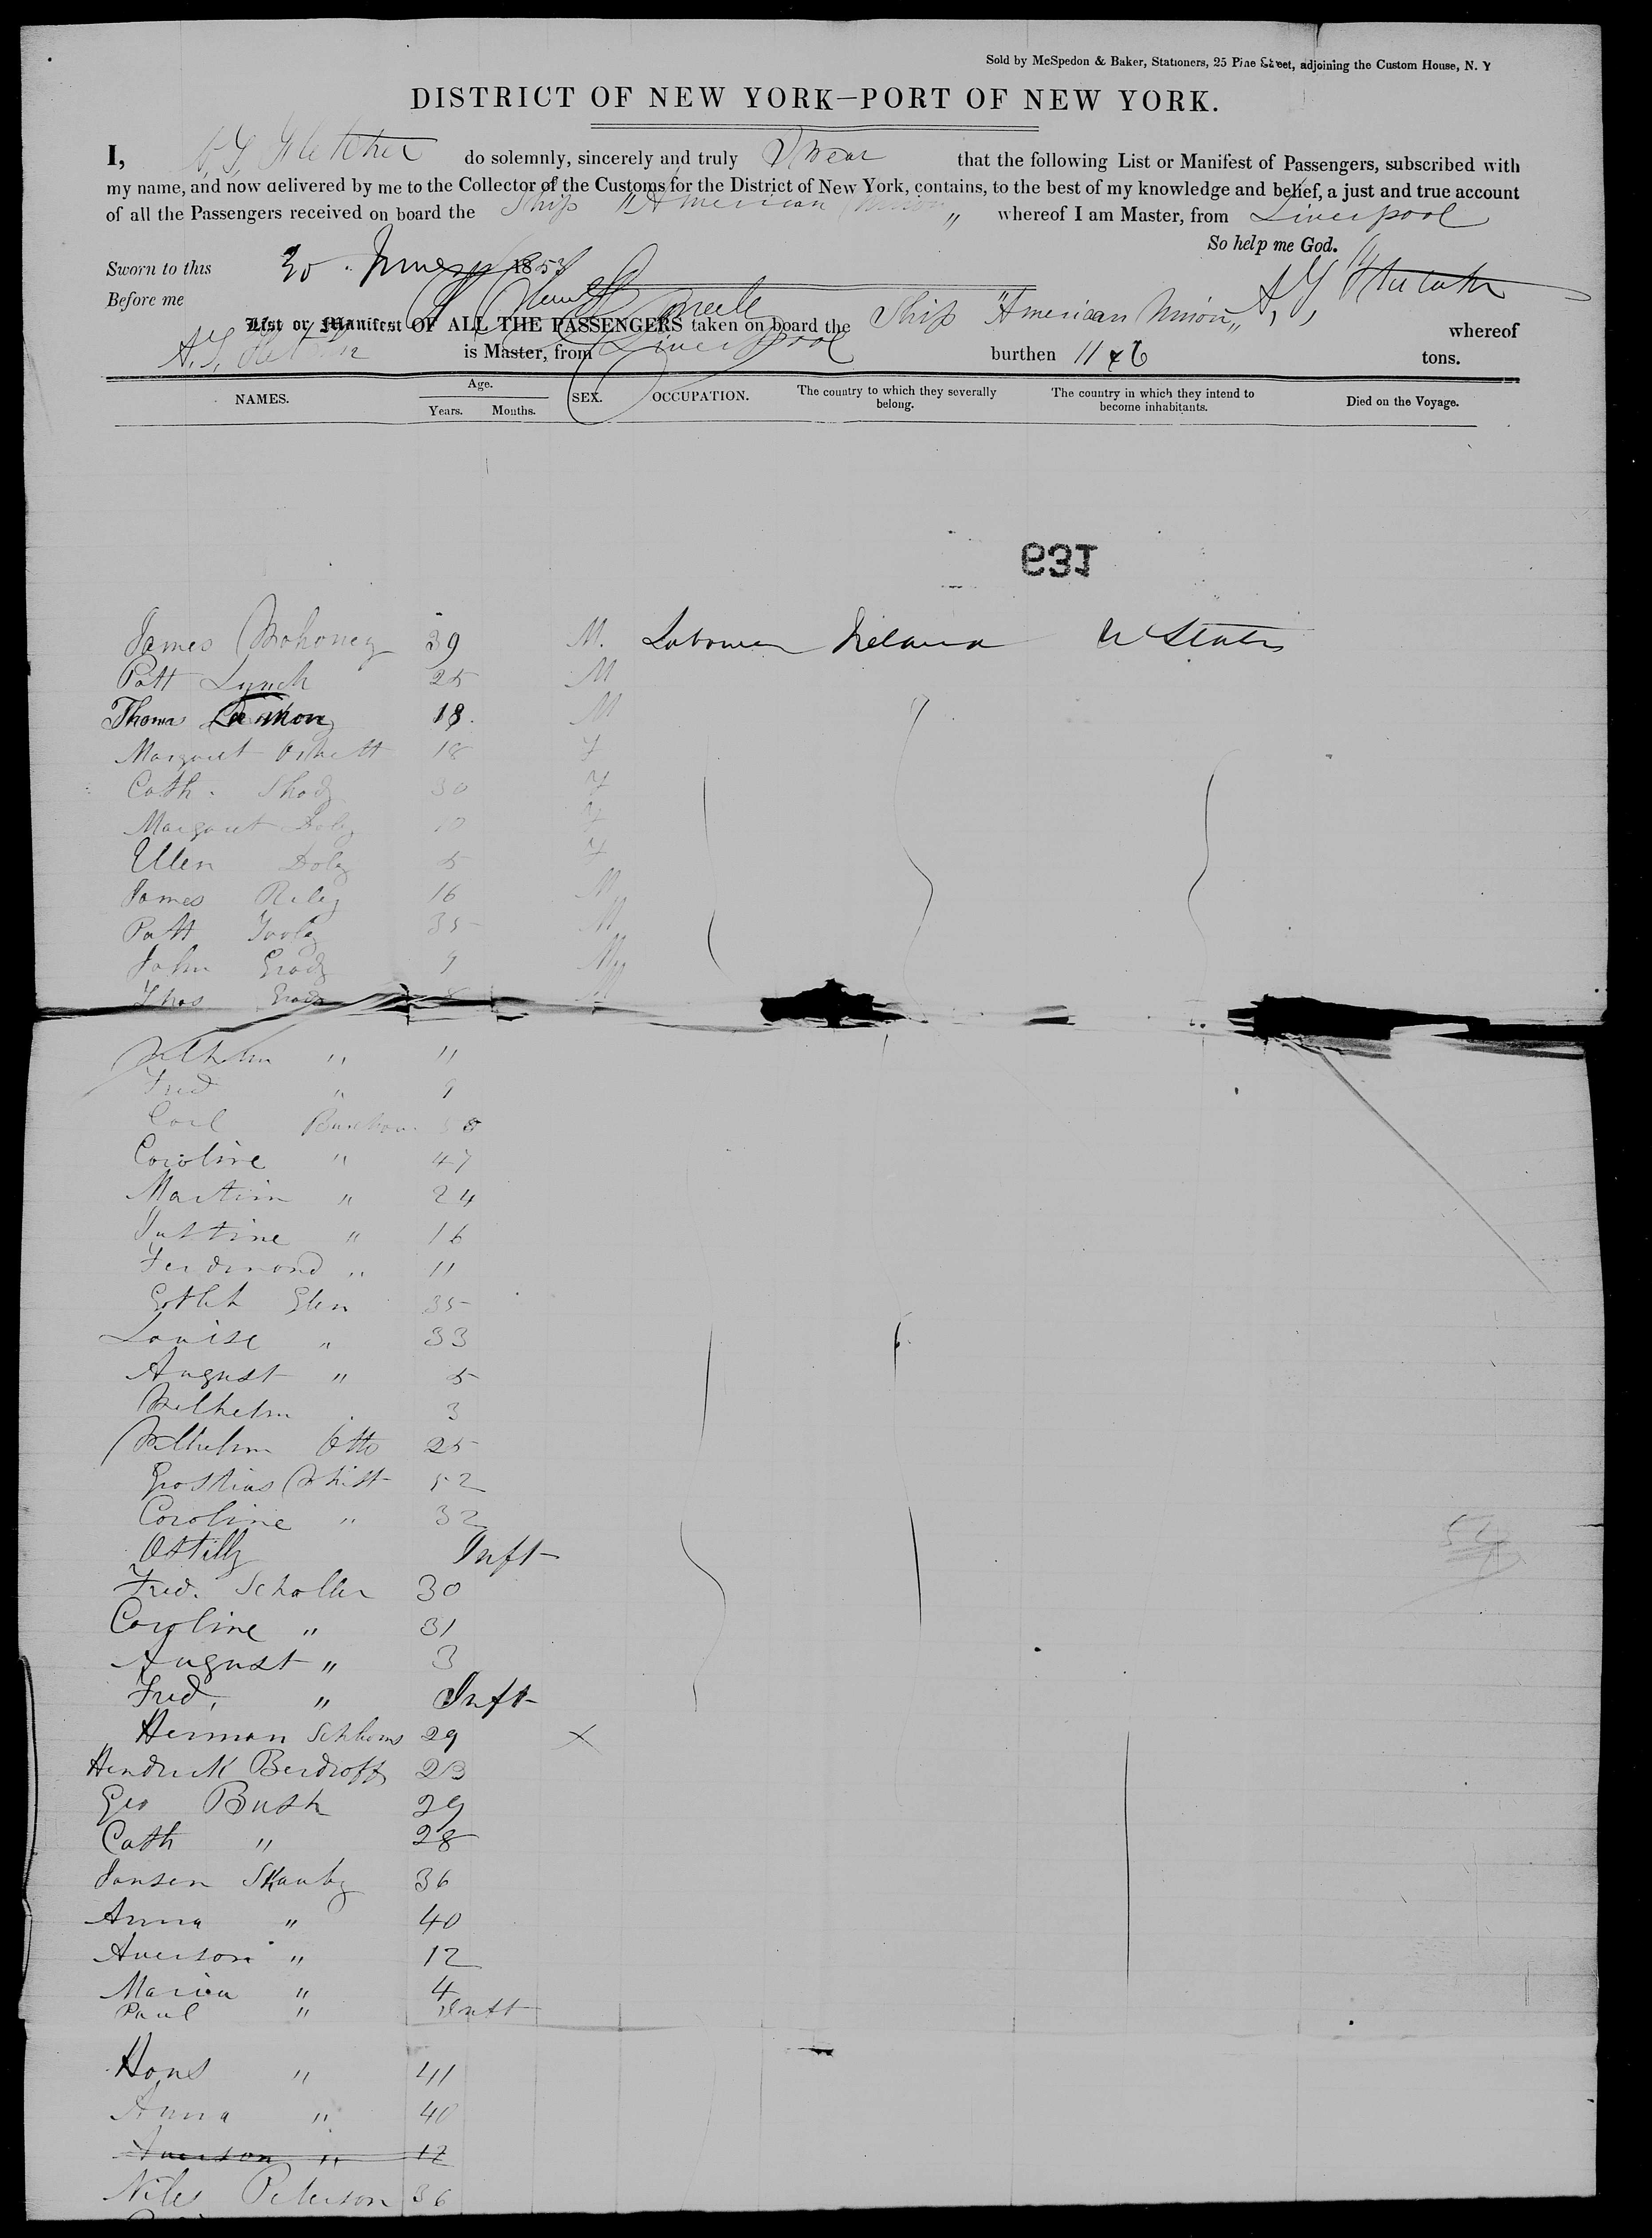 Sold by McSpedon & Baker, Stationers, 25 Pine Street, adjoining the Custom House, N. Y
DISTRICT OF NEW YORK—PORT OF NEW YORK.
I, A. G. Fletcher do solemnly, sincerely and truly Swear that the following List or Manifest of Passengers, subscribed with
my name, and now delivered by me to the Collector of the Customs for the District of New York, contains, to the best of my knowledge and belief, a just and true account
of all the Passengers received on board the Ship "American Union" whereof I am Master, from Liverpool
So help me God.
Sworn to this 30 June 1853
Before me
List or Manifest OF ALL THE PASSENGERS taken on board the Ship "American Union" whereof
is Master, from Liverpool burthen 1146 tons.
NAMES. Age. Years. Months. SEX. OCCUPATION. The country to which they severally belong. The country in which they intend to become inhabitants. Died on the Voyage.
931
James Mahoney 39 M. Labourer Ireland U States
Patt Lynch 25 M
Thomas 18. M
Margaret 18 F
Cath. 30 F
Margaret Doly F
Ellen Doly 5 F
James Riley 16 M
Patt 35 M
John Grady 9 M
Thos Grady 8 M
Wilhelm " 11
Fred " 9
Carl
Caroline " 47
Martin " 24
Justine " 16
Ferdinand " 11
Gotlieb Glen 35
Louise " 33
August " 5
Wilhelm 3
Wilhelm Otto 25
52
Caroline " 32
Inft
Fred. Scholler 30
Caroline " 31
August " 3
Fred, " Inft
Herman 29 X
Hendrick Berdroff 23
Geo Bush 29
Cath " 28
Jansen 36
Anna " 40
Averson " 12
Maria " 4
Paul " Inft
Hans " 41
Anna " 40
Averson " 12
Niles Peterson 36